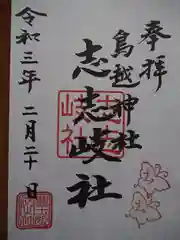 奉拝
鳥越神社
志志岐社
令和三年二月二十日